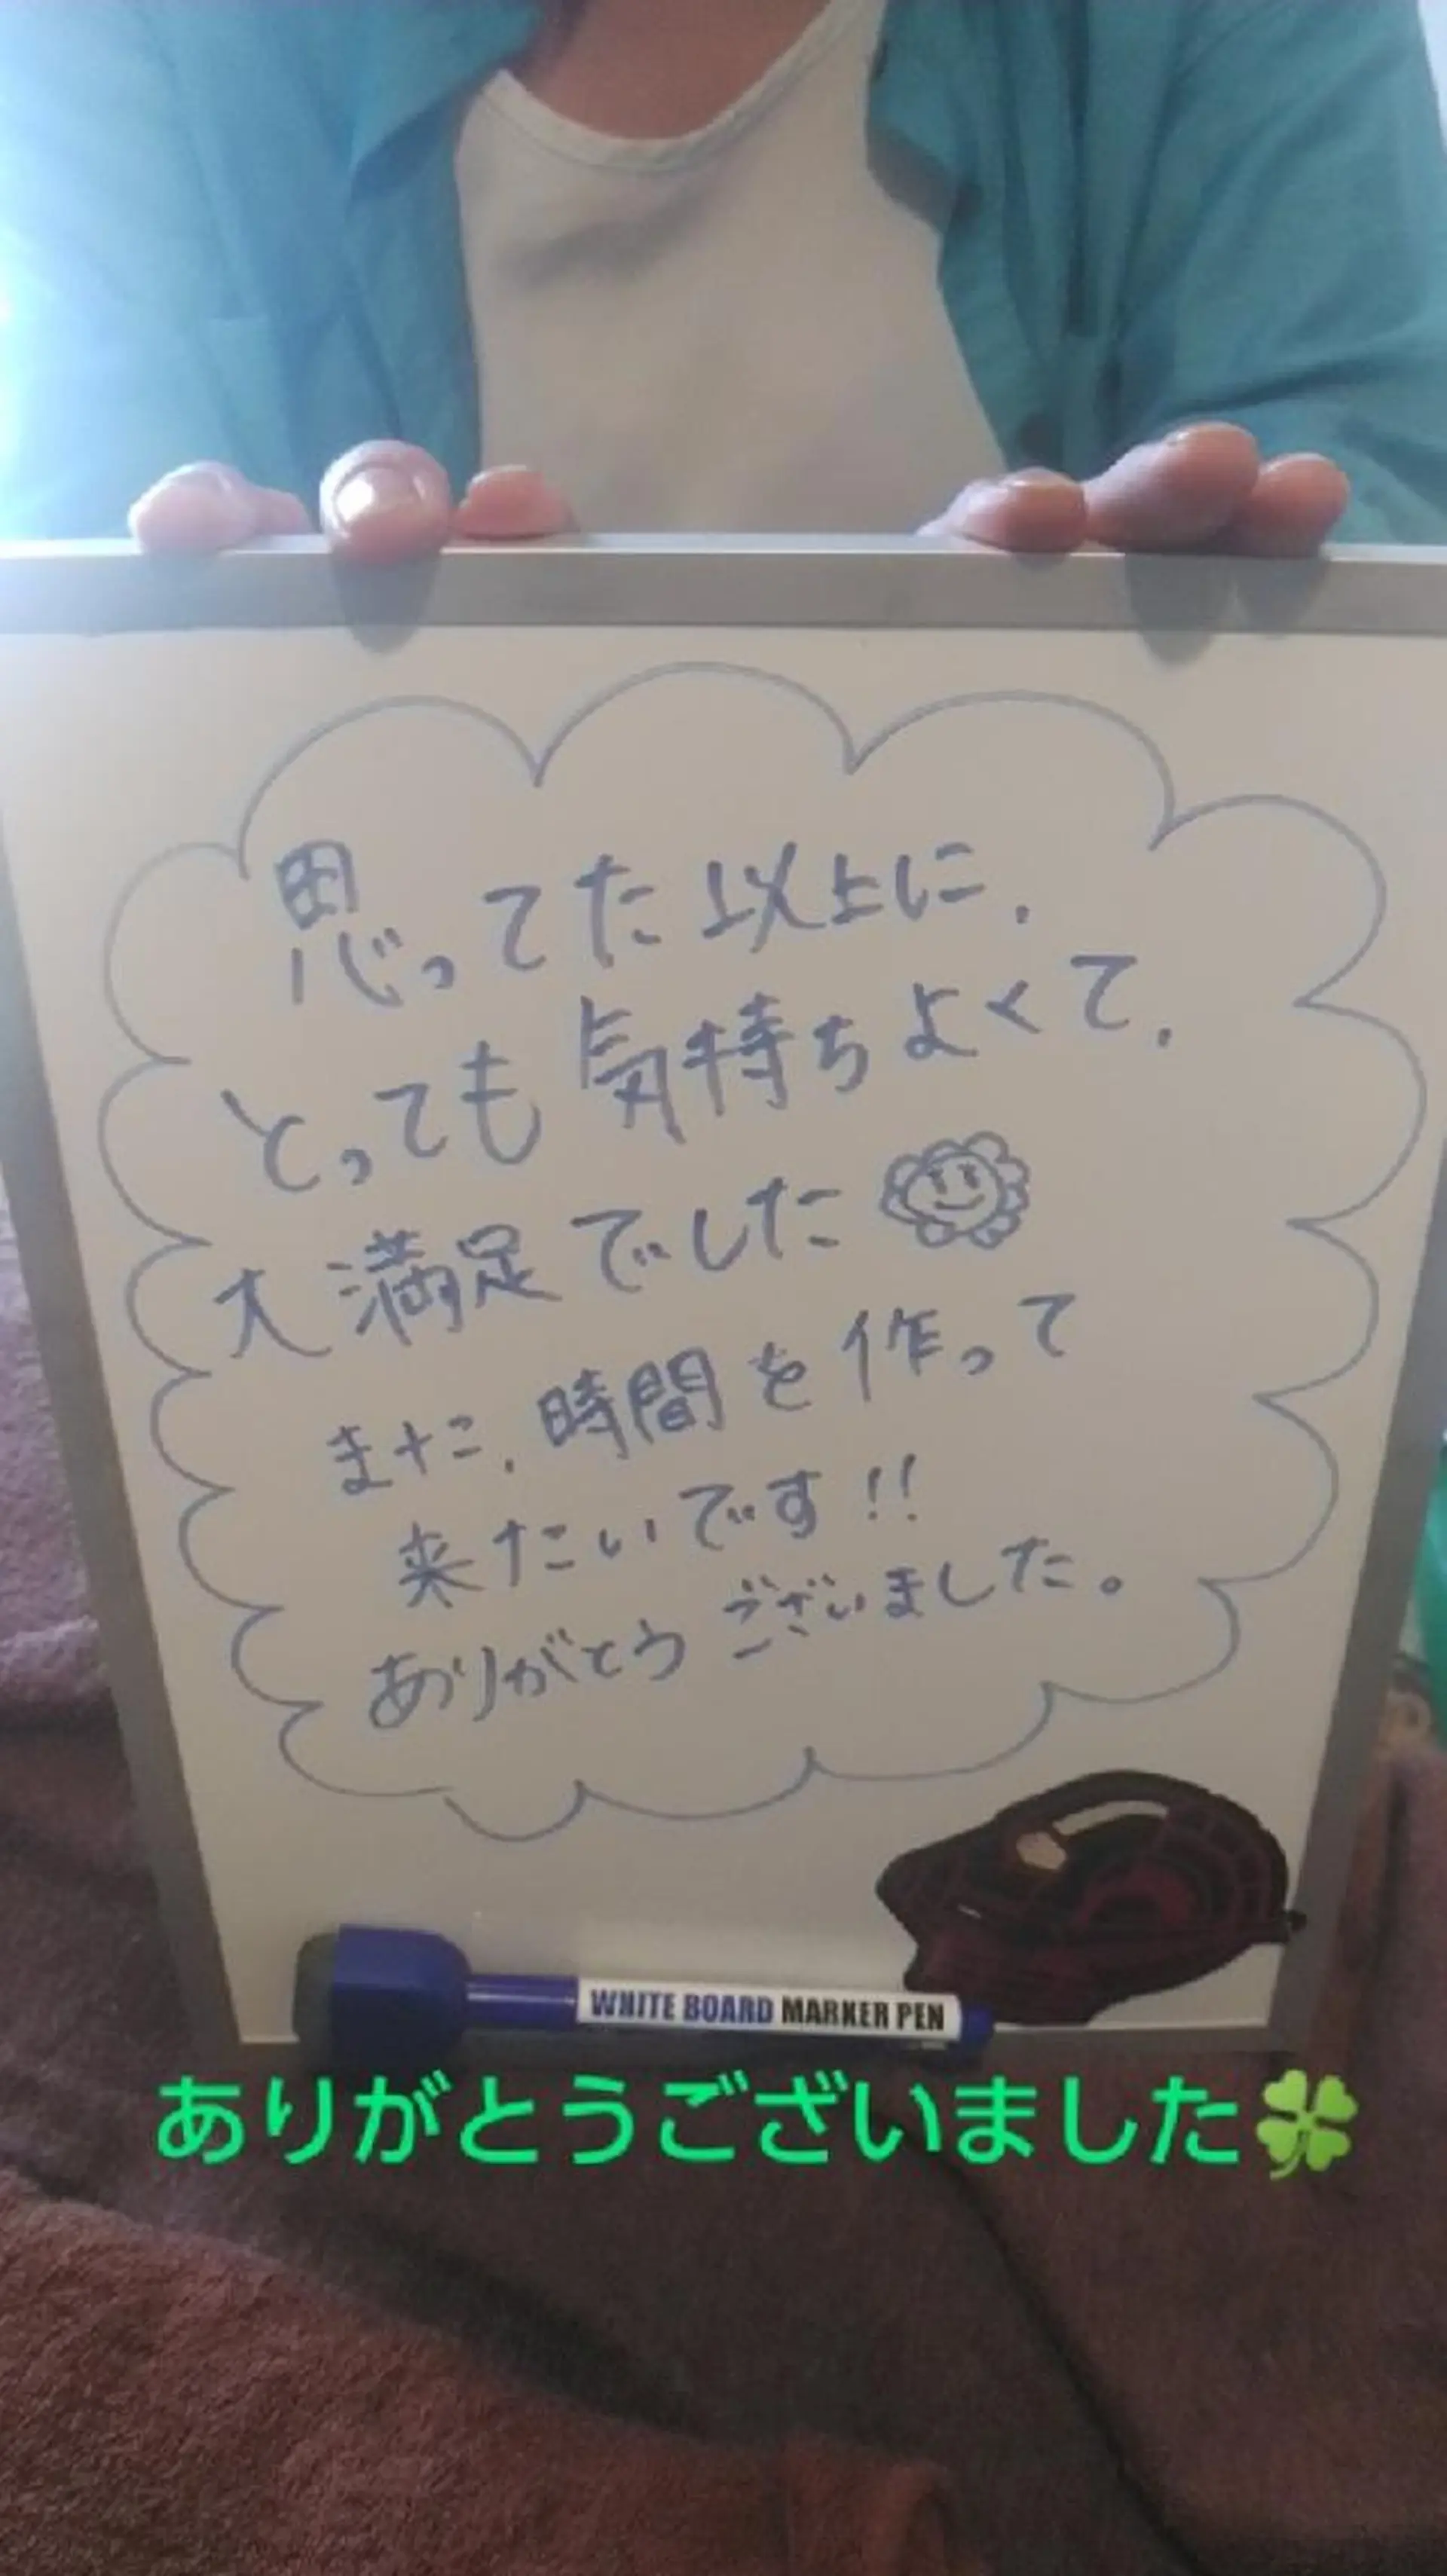 思ってた以上に、
とっても気持ちよくて、
大満足でした
また、時間を作って
来たいです!!
ありがとうございました。
WHITE BOARD MARKER PEN
ありがとうございました🍀